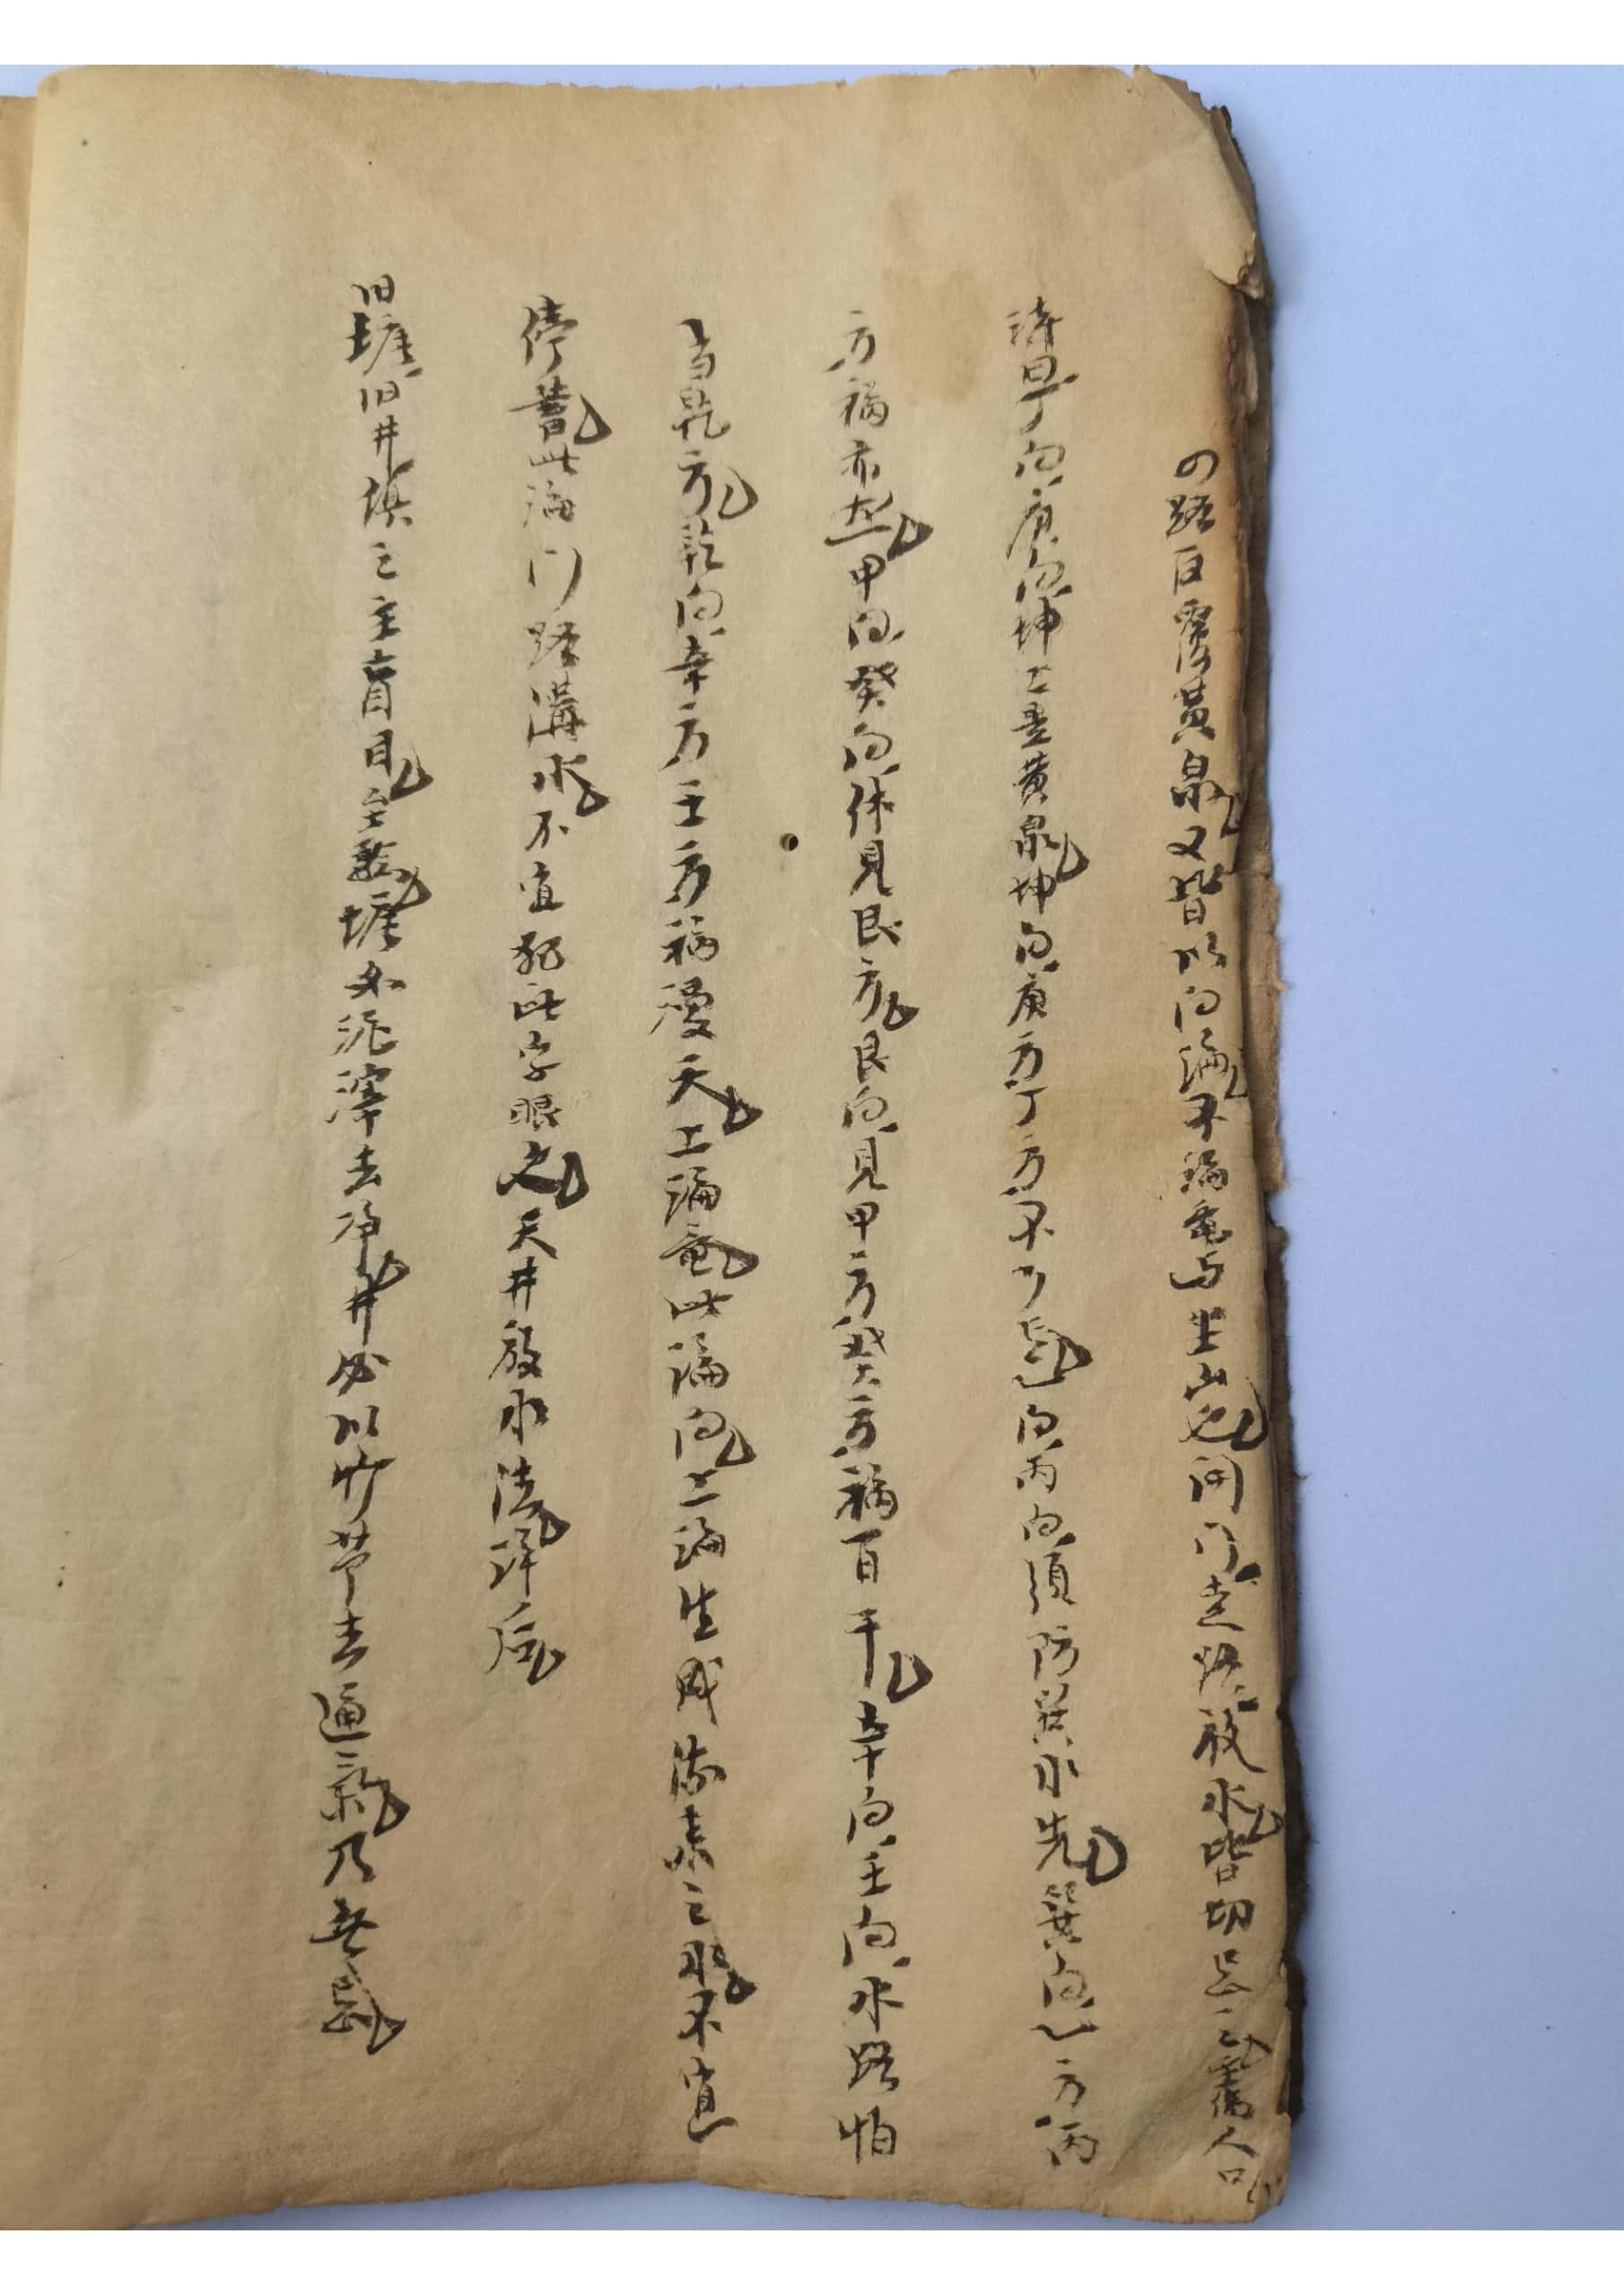 四路反覆黄泉又皆以向論不論龍与坐山也開门走路放水皆切忌之主傷人口
詩曰丁向庚向坤上是黄泉坤向庚方丁方不可言乙向丙向須防巽水先巽向乙方丙
方禍亦然甲向癸向休見艮方艮向見甲方癸方禍百千辛向壬向水路怕
当乾方乾向辛方壬方禍漫天上論龍此論向二論生成流来之水不宜
停蓄此論门路溝水不宜犯此字眼之天井放水法詳后
旧塘旧井填之主盲目主塘必泥滓去净井必以竹节去通氣乃无忌